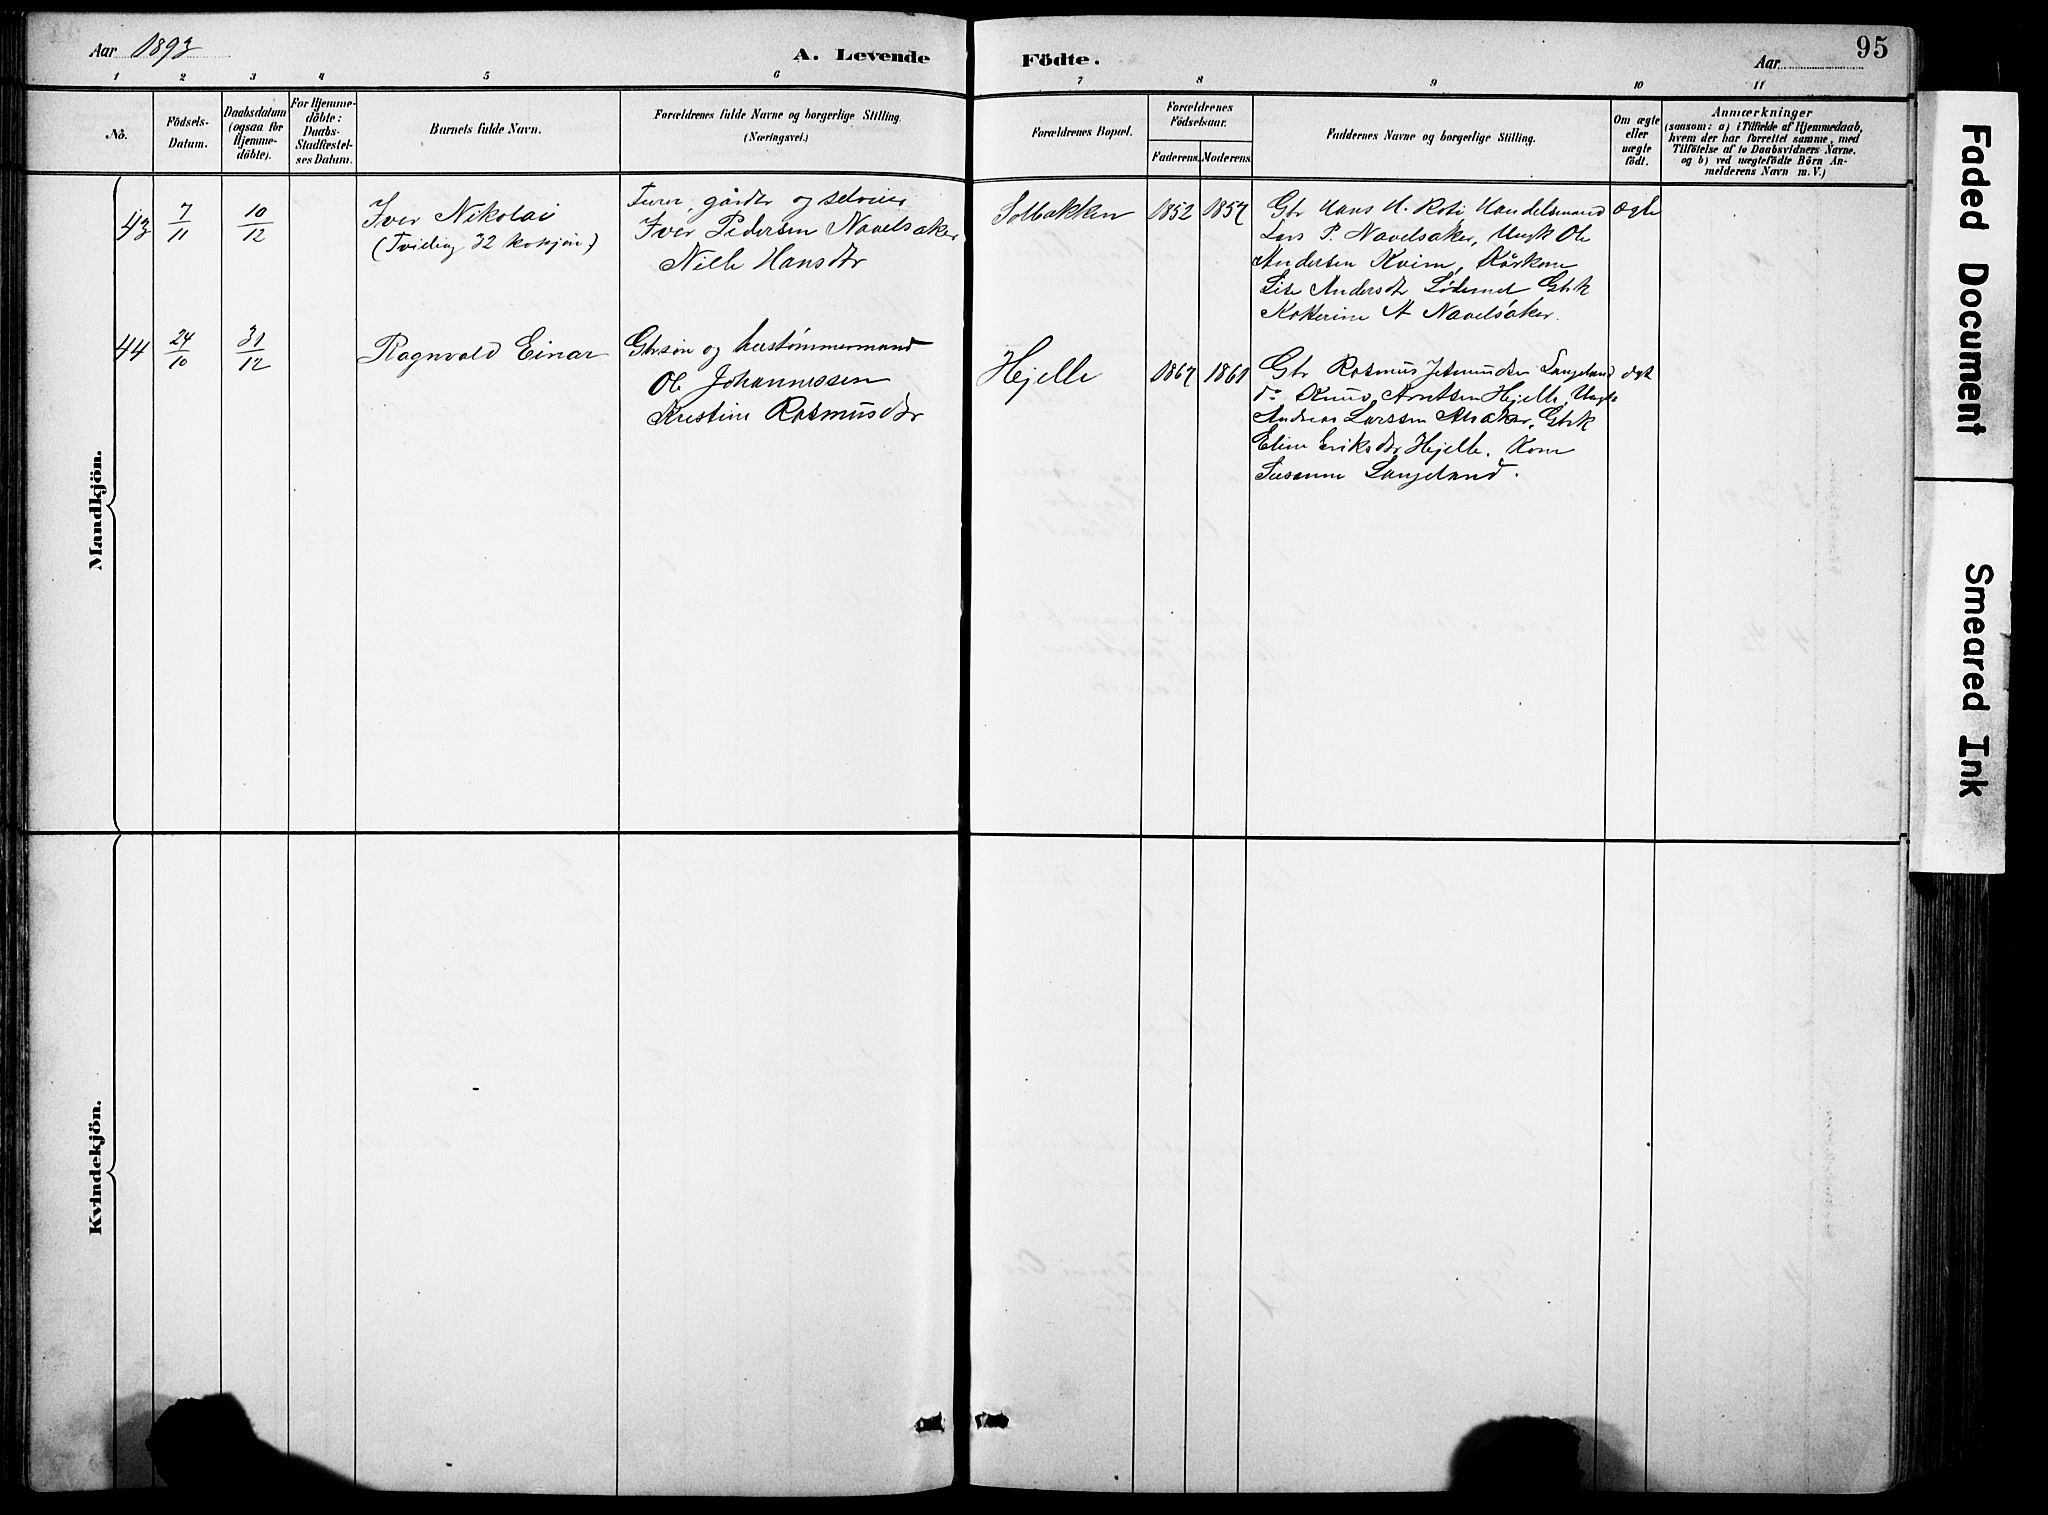 Aar 1893
A. Levende
Födte.
Aar
95
1 2 3 4 5 6 7 8 9 10 11
No.
Födsels-
Datum.
Daabsdatum
(ogsaa for
Hjemme-
döbte).
For Hjemme-
döbte:
Daabs-
Stadfæstel-
ses Datum.
Barnets fulde Navn.
Forældrenes fulde Navne og borgerlige Stilling.
(Næringsvei.)
Forældrenes Bopæl.
Forældrenes
Födselsaar.
Faderens. Moderens.
Faddernes Navne og borgerlige Stilling.
Om ægte
eller
uægte
födt.
Anmærkninger
(saasom: a) i Tilfælde af Hjemmedaab,
hvem der har forrettet samme, med
Tilföielse af to Daabsvidners Navne.
og b) ved uægtefödte Börn An-
melderens Navn m. V.)
Mandkjön.
43
7/11
10/12
Iver Nikolai
(Tvilling 32 kvkjøn)
gårdbr og selveier
Iver Pedersen Navelsaker
Nille Hansdtr
Solbakken
1852
1857
Gbr Hans H. Roti Handelsmand
Lars P. Navelsaker, Ungk Ole
Andersen Kvim, Kårkone
Lise Andersdtr Lødemel Gbrk
Katterine A Navelsaker.
ægte
44
24/10
31/12
Ragnvald Einar
Gbrsøn og hustømmermand
Ole Johannessen
Kristine Rasmusdtr
Hjelle
1867
1861
Gbr Rasmus Langeland
do Knud Arntsen Hjelle, Ungk
Andreas Larssen Gbrk
Eline Eriksdtr Hjelle. Kone
Susanne Langeland.
ægte
Kvindekjön.
Faded Document
Smeared Ink